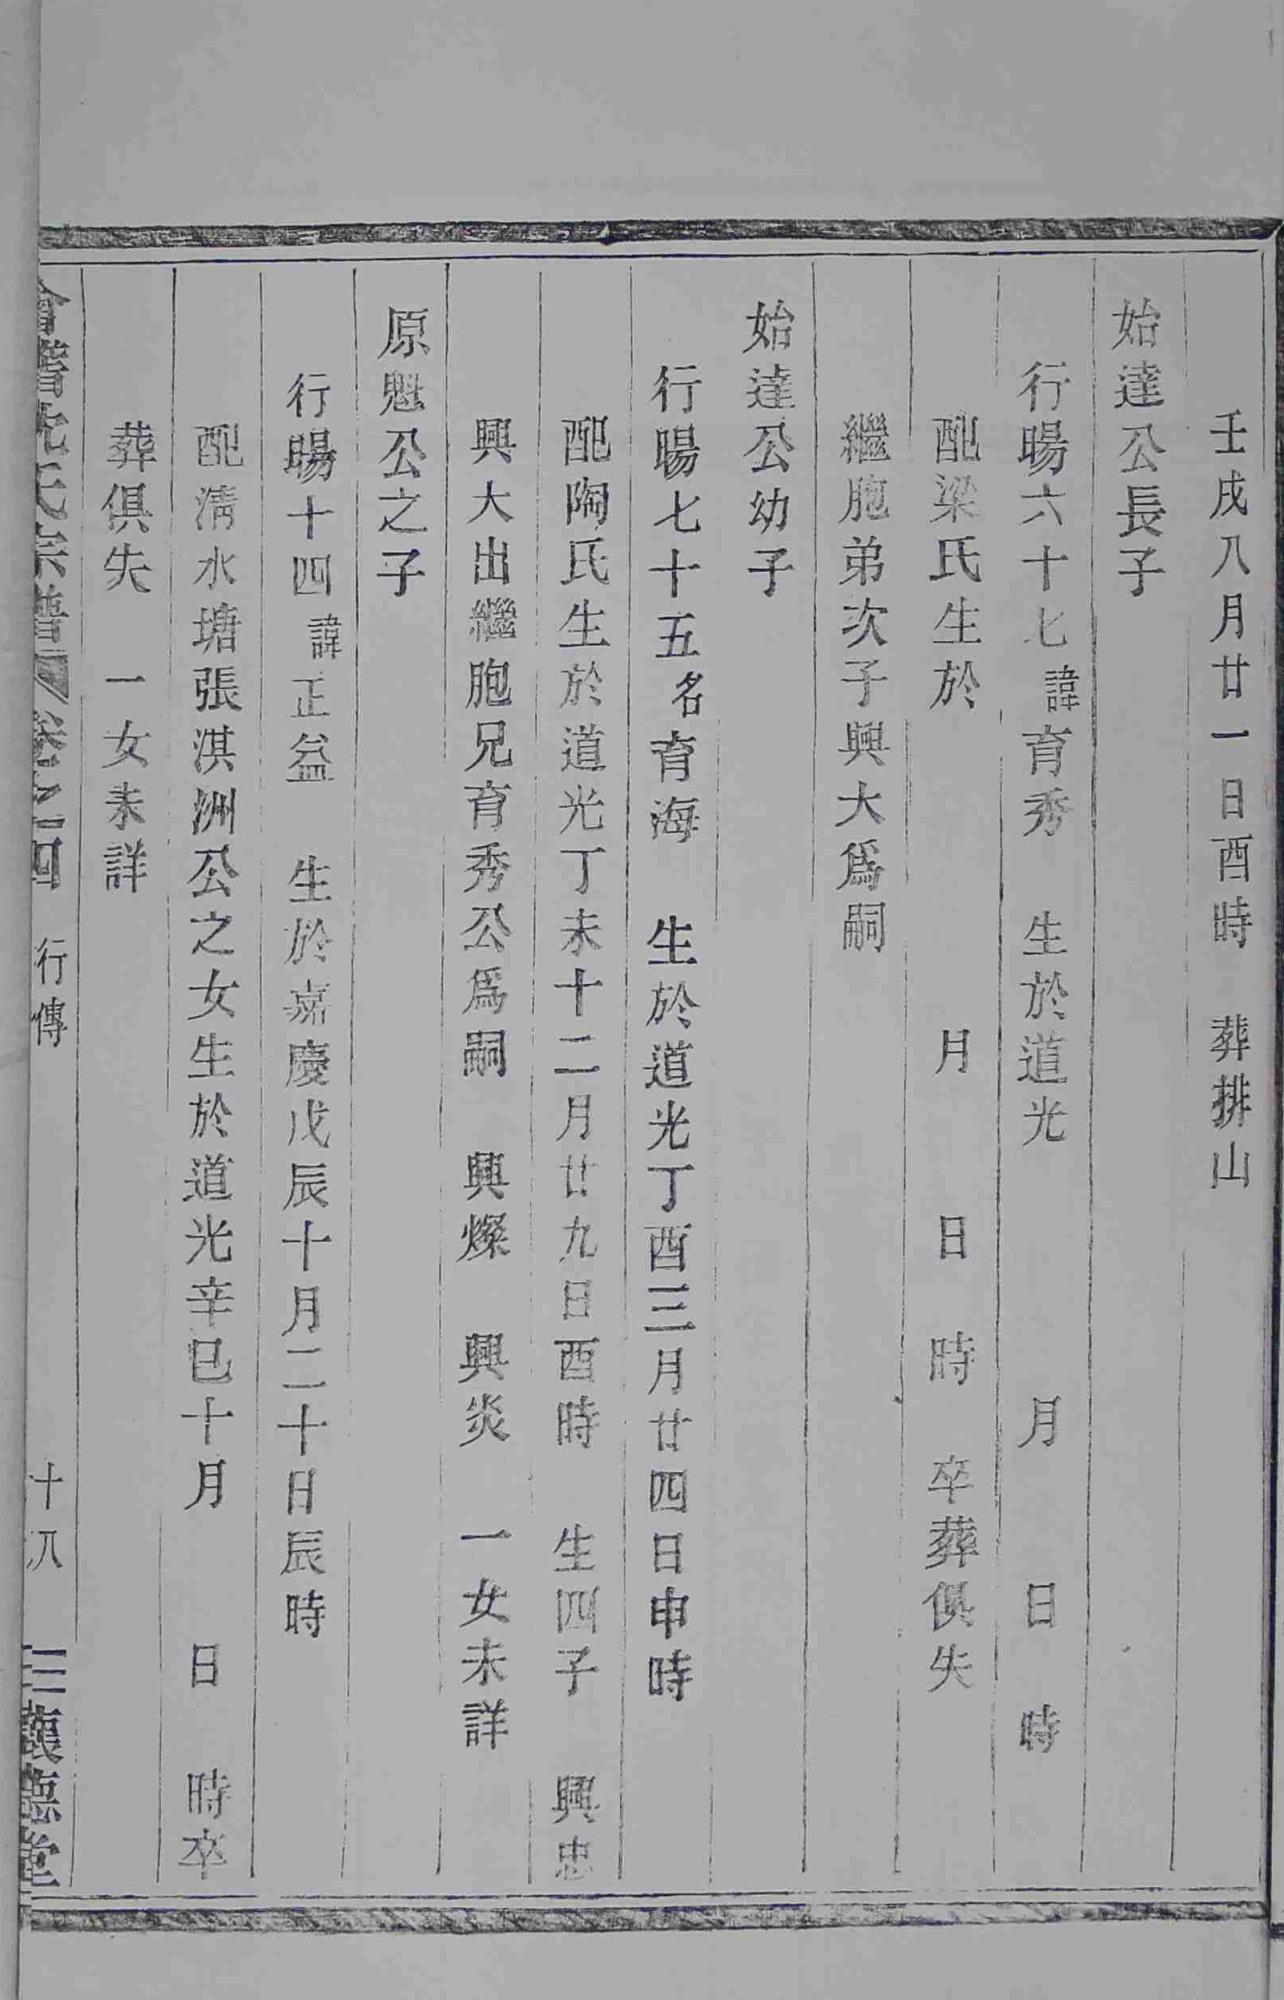 壬戌八月廿一日酉時　葬排山
始達公長子
行暘六十七諱育秀　生於道光　月　日　時
配梁氏生於　月　日　時　卒葬俱失
繼胞弟次子興大爲嗣
始達公幼子
行暘七十五名育海　生於道光丁酉三月廿四日申時
配陶氏生於道光丁未十二月廿九日酉時　生四子　興忠
興大出繼胞兄育秀公爲嗣　興燦　興炎　一女未詳
原魁公之子
行暘十四諱正益　生於嘉慶戊辰十月二十日辰時
配淸水塘張淇洲公之女生於道光辛巳十月　日　時卒
葬俱失　一女未詳
會稽沈氏宗譜　卷之四　行傳　十八　三讓德堂